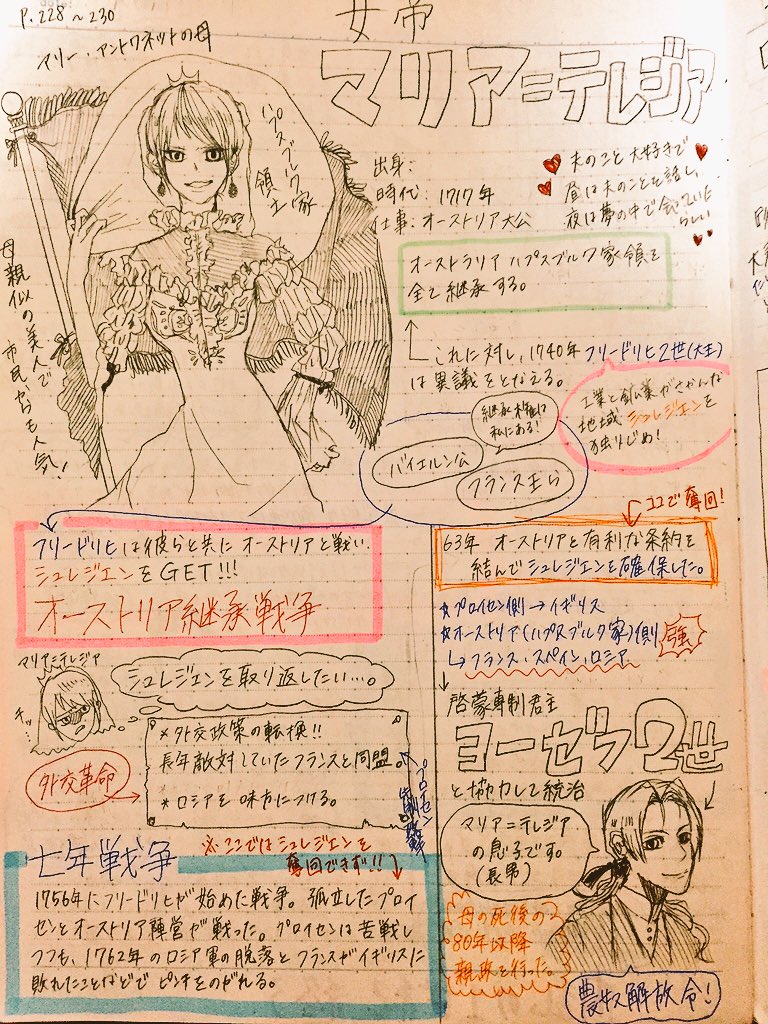 P.228~230
マリー・アントワネットの母
女帝
マリア=テレジア
ハプスブルク家
領主
母親似の美人で
市民からも人気!
出身:
時代:1717年
仕事:オーストリア大公
夫のこと大好きで
昼は夫のことを話し、
夜は夢の中で会っていた
らしい
オーストラリア ハプスブルク家領を
全て継承する。
これに対し、1740年 フリードリヒ2世(大王)
は異議をとなえる。
工業と鉱業がさかんな
地域 シュレジエンを
独りじめ!
継承権は
私にある!
バイエルン公
フランス王ら
フリードリヒは彼らと共に オーストリアと戦い、
シュレジエンをGET!!!
オーストリア継承戦争
ココで奪回!
63年 オーストリアと有利な条約を
結んでシュレジエンを確保した。
☆プロイセン側→イギリス
☆オーストリア(ハプスブルク家)側
強
フランス、スペイン、ロシア
マリア=テレジア
チッ…
シュレジエンを取り返したい…。
*外交政策の転換!!
長年敵対していたフランスと同盟。
*ロシアを味方につける。
外交革命
プロイセン
啓蒙専制君主
ヨーゼフ2世
と協力して統治
マリア=テレジア
の息子です。
(長男)
母の死後の
80年以降
親政を行った。
農奴解放令!
七年戦争
※ここではシュレジエンを
奪回できず!!
1756年にフリードリヒが始めた戦争。孤立したプロイ
センとオーストリア陣営が戦った。プロイセンは苦戦し
つつも、1762年のロシア軍の脱落とフランスがイギリスに
敗れたことなどでピンチをのがれる。